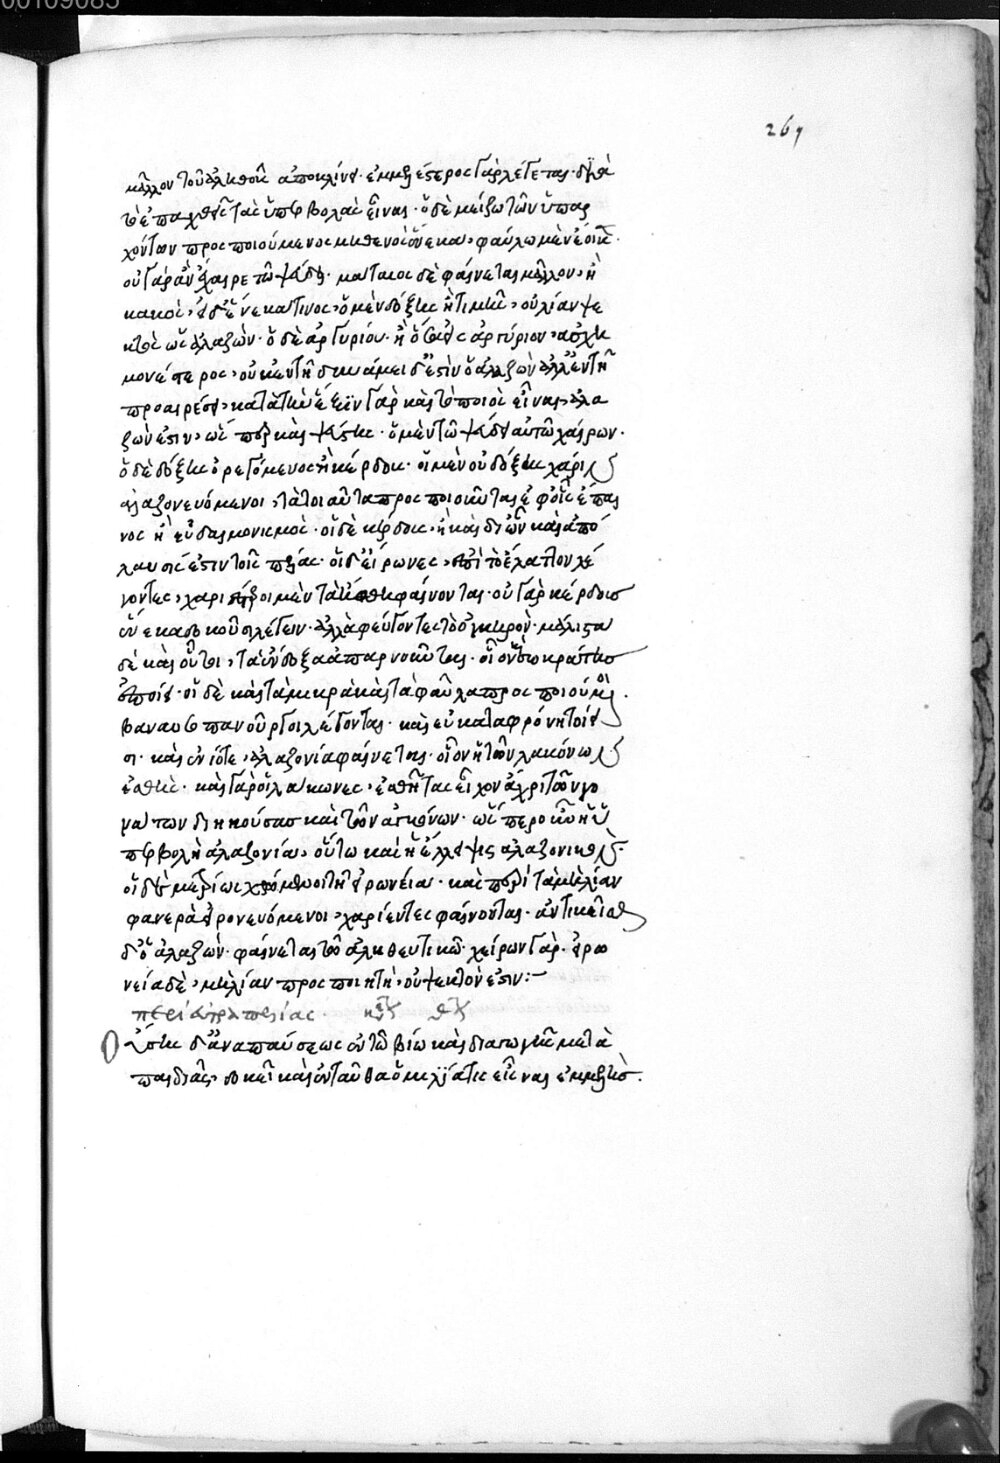 00109085
267
μᾶλλον τοῦ ἀληθοῦς ἀποκλίνει· ἐμμελέστερος γὰρ λέγεται· διὰ
τὸ ἐπαχθεῖς τὰς ὑπερβολὰς εἶναι· ὁ δὲ μείζω τῶν ὑπαρ
χόντων προσποιούμενος μηθενὸς ἕνεκα, φαύλω μὲν ἔοικε·
οὐ γὰρ ἂν ἔχαιρε τῷ ψεύδει· μάταιος δὲ φαίνεται μᾶλλον, ἢ
κακός, εἰ δ' ἕνεκά τινος, ὁ μὲν δόξης ἢ τιμῆς, οὐ λίαν ψε
κτὸς ὡς ἀλαζών· ὁ δὲ ἀργυρίου· ἢ ὅσα εἰς ἀργύριον, ἀσχη
μονέστερος, οὐκ ἐν τῇ δυνάμει δ' ἐστὶν ὁ ἀλαζὼν ἀλλ' ἐν τῇ
προαιρέσει, κατὰ τὴν ἕξιν γὰρ καὶ τὸ ποιὸς εἶναι, ἀλα
ζών ἐστιν, ὡς περ καὶ ψεύστης· ὁ μὲν τῷ ψεύδει αὐτῷ χαίρων·
ὁ δὲ δόξης ὀρεγόμενος ἢ κέρδους· οἱ μὲν οὖν δόξης χάριν
ἀλαζονευόμενοι, τὰ τοιαῦτα προσποιοῦνται ἐφ' οἷς ἔπαι
νος ἢ εὐδαιμονισμός· οἱ δὲ κέρδους, ὧν καὶ ἀπό
λαυσίς ἐστι τοῖς πέλας· οἱ δ' εἴρωνες, ἐπὶ τὸ ἔλαττον λέ
γοντες, χαριέστεροι μὲν τὰ ἤθη φαίνονται· οὐ γὰρ κέρδους
ἕνεκα δοκοῦσι λέγειν· ἀλλὰ φεύγοντες τὸ ὀγκηρόν· μάλιστα
δὲ καὶ οὗτοι, τὰ ἔνδοξα ἀπαρνοῦνται· οἷον Σωκράτης
ἐποίει· οἱ δὲ καὶ τὰ μικρὰ καὶ τὰ φαῦλα προσποιούμενοι·
βαυκοπανοῦργοι λέγονται· καὶ εὐκαταφρόνητοί εἰ
σι· καὶ ἐνίοτε, ἀλαζονία φαίνεται· οἷον ἡ τῶν λακόνων
ἐσθής· καὶ γὰρ οἱ λάκωνες, ἐσθῆτας εἶχον ἄχρι τῶν γο
νάτων διηκούσας καὶ τῶν ἀγκόνων· ὥς περ οὖν ἡ ὑ
περβολὴ ἀλαζονία, οὕτω καὶ ἡ ἔλλειψις ἀλαζονικὴ·
οἱ δὲ μετρίως χρόμενοι τῇ εἰρωνεία· καὶ περὶ τὰ μὴ λίαν
φανερὰ εἰρονευόμενοι, χαρίεντες φαίνονται· ἀντικεῖσθαι
δ' ὁ ἀλαζών· φαίνεται τῷ ἀληθευτικῷ· χείρων γάρ· εἰρω
νεία δὲ, μὴ λίαν προσποιητὴ, οὐ ψεκτόν ἐστιν:-
περὶ εὐτραπελίας.
Οὔσης δ' ἀναπαύσεως ἐν τῷ βίῳ καὶ διαγωγῆς μετὰ
παιδιᾶς, δοκεῖ καὶ ἐνταῦθα ὁμιλία τις εἶναι ἐμμελὴς.